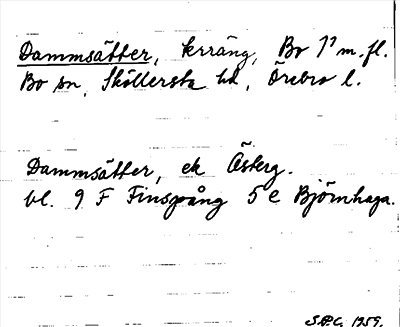 Dammsätter, krräng, Bo 1³ m.fl.
Bo sn, Sköllersta hd, Örebro l.
Dammsätter, ek Österg.
bl. 9 F Finspång 5 e Björnhaga.
1959.